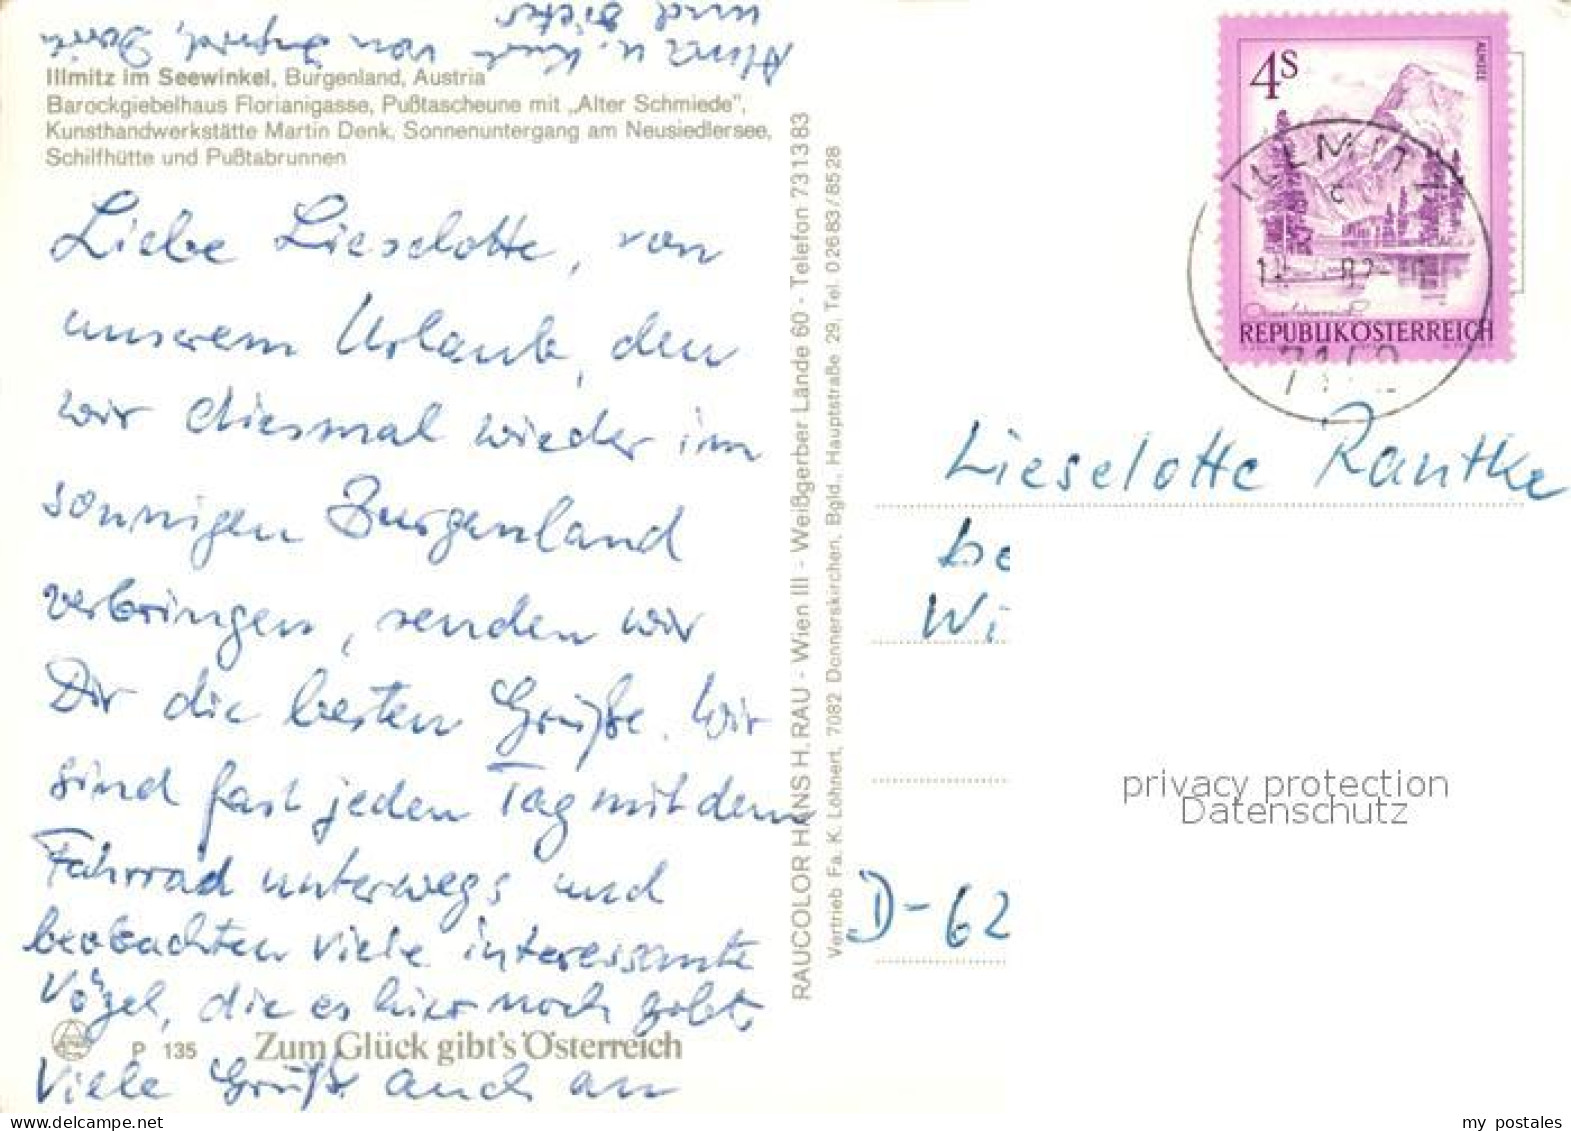 Illmitz im Seewinkel, Burgenland, Austria
Barockgiebelhaus Florianigasse, Pußtascheune mit „Alter Schmiede",
Kunsthandwerkstätte Martin Denk, Sonnenuntergang am Neusiedlersee,
Schilfhütte und Pußtabrunnen
Liebe Lieselotte, von
unserem Urlaub, den
wir diesmal wieder im
sonnigen Burgenland
verbringen, senden wir
Dir die besten Grüße. Wir
sind fast jeden Tag mit dem
Fahrrad unterwegs und
beobachten viele interessante
Vögel, die es hier noch gibt.
Viele Grüße auch an
u. Kurt von Ingrid, Doris
und Dieter
P 135
Zum Glück gibt's Österreich
RAUCOLOR HANS H. RAU - Wien III - Weißgerber Lände 60 - Telefon 73 13 83
Vertrieb Fa. K. Löhnert, 7082 Donnerskirchen, Bgld., Hauptstraße 29, Tel. 0 26 83 / 85 28
4S
ALMSEE
REPUBLIK ÖSTERREICH
ILLMITZ
Lieselotte Rantke
be
Wi
D-62
privacy protection
Datenschutz
my postales